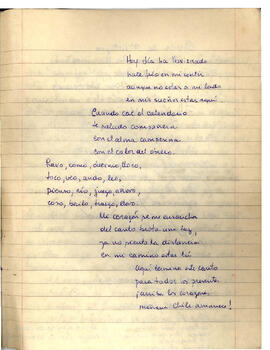 Hoy día ha
hace frío en mi
aunque no estar a mi lado
en mis sueños estás aquí
Cuando cae el calendario
te saludo compañera
con el alma campesina
con el calor del obrero.
Lavo, como, duermo, lloro,
toco, veo, ando, leo,
pienso, río, juego, ahoro,
coso, bailo, traigo, lloro.
Mi corazón se me ensancha
del canto brota una luz,
ya no siento la distancia
en mi camino estás tú
Aquí termino este canto
para todos los presentes
¡arriba los corazones
mañana Chile amanece!